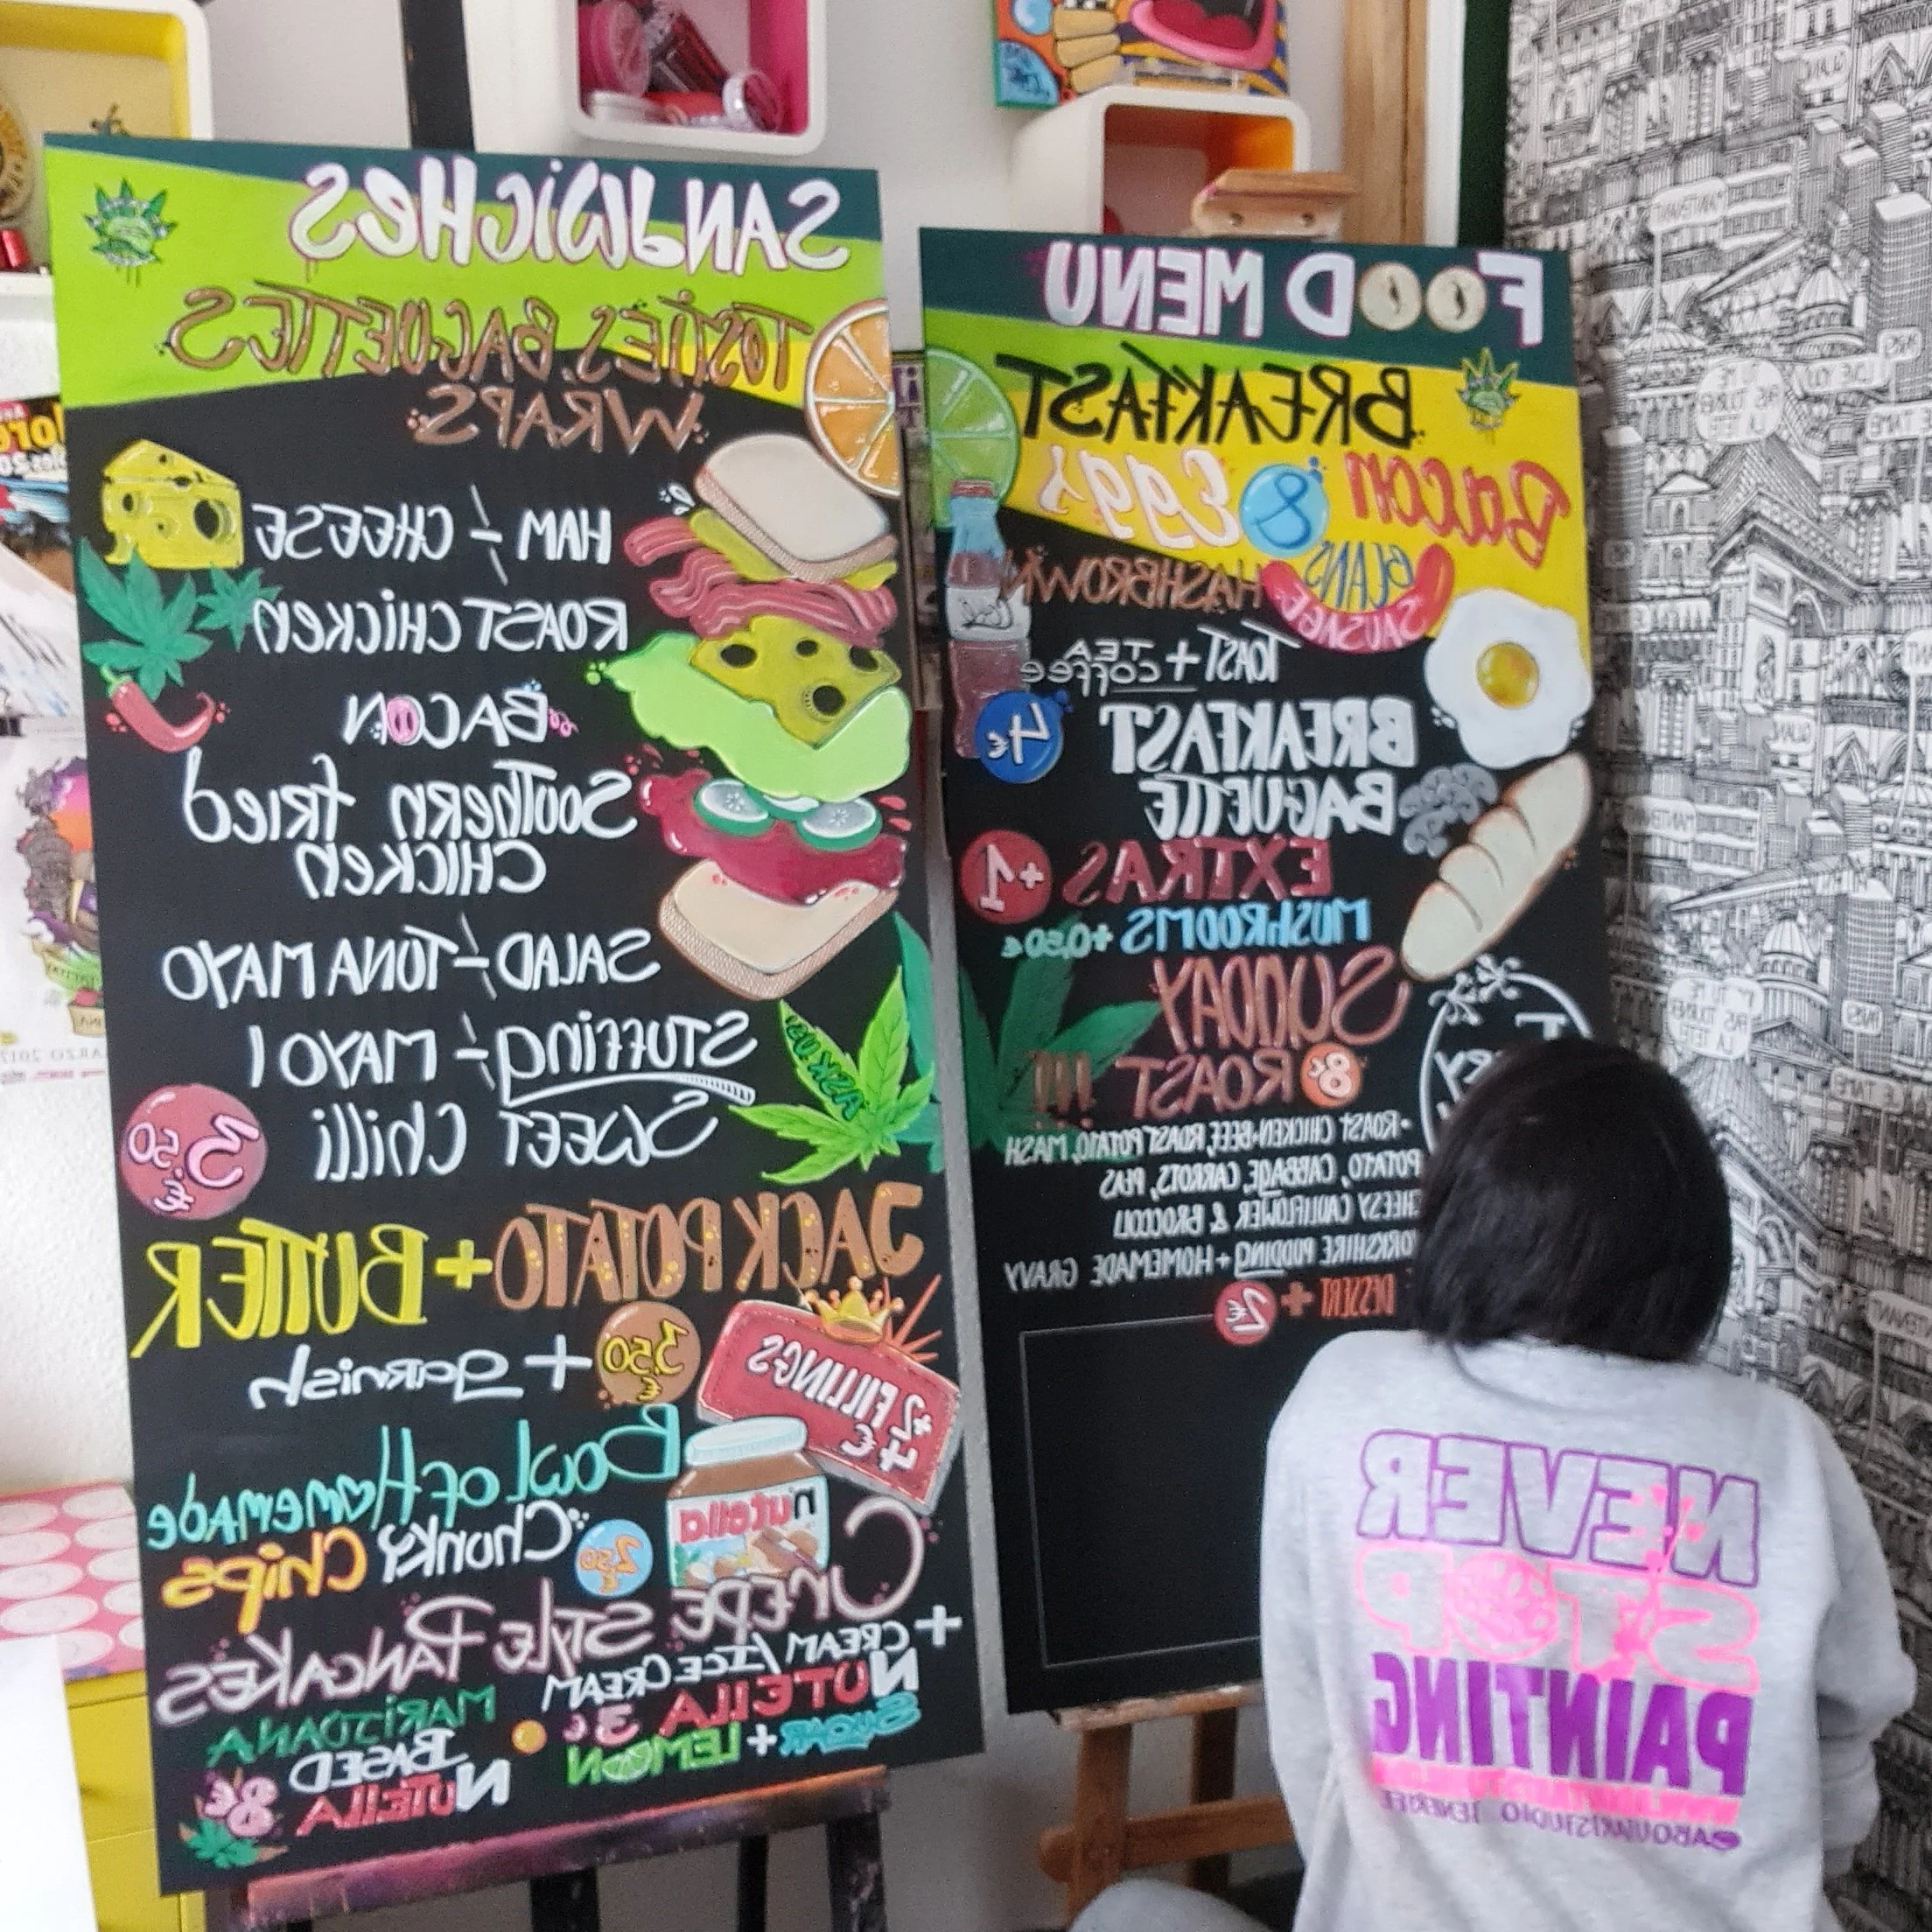 SANdWiCHeS
TOSTIES, BAGUETTES
WRAPS
HAM -/- CHEESE
ROAST CHiCKen
BACON
SouThern fRied
CHICKen
SALAD -/- TUNA MAYO
STUFFing -/- MAYO I
SWEET Chilli
3,50 €
ASK US!
JACK POTATO + BUTTER
+ garnish 3,50 €
+2 FILLINGS
4 €
Bowl of Homemade
Chunky Chips 2,50 €
nutella
CrEPE STyle PANCAKeS
+ CREAM / ICE CREAM
NUTELLA 3€
SUGAR + LEMON
MARIJUANA
BASED
NUTELLA 8€
FOOD MENU
BREAKFAST
Bacon & Eggs
SAUSAGE BEANS HASHBROWN
TOAST + TEA
COFFEE
4€
BREAKFAST
BAGUETTE
EXTRAS +1
MUSHROOMS +0,50€
SUNDAY
ROAST 8€ !!!
• ROAST CHICKEN - BEEF, ROAST POTATO, MASH
POTATO, CABBAGE, CARROTS, PEAS
CHEESY CAULIFLOWER & BROCCOLI
YORKSHIRE PUDDING + HOMEMADE GRAVY
DESSERT + 2€
NEVER
STOP
PAINTING